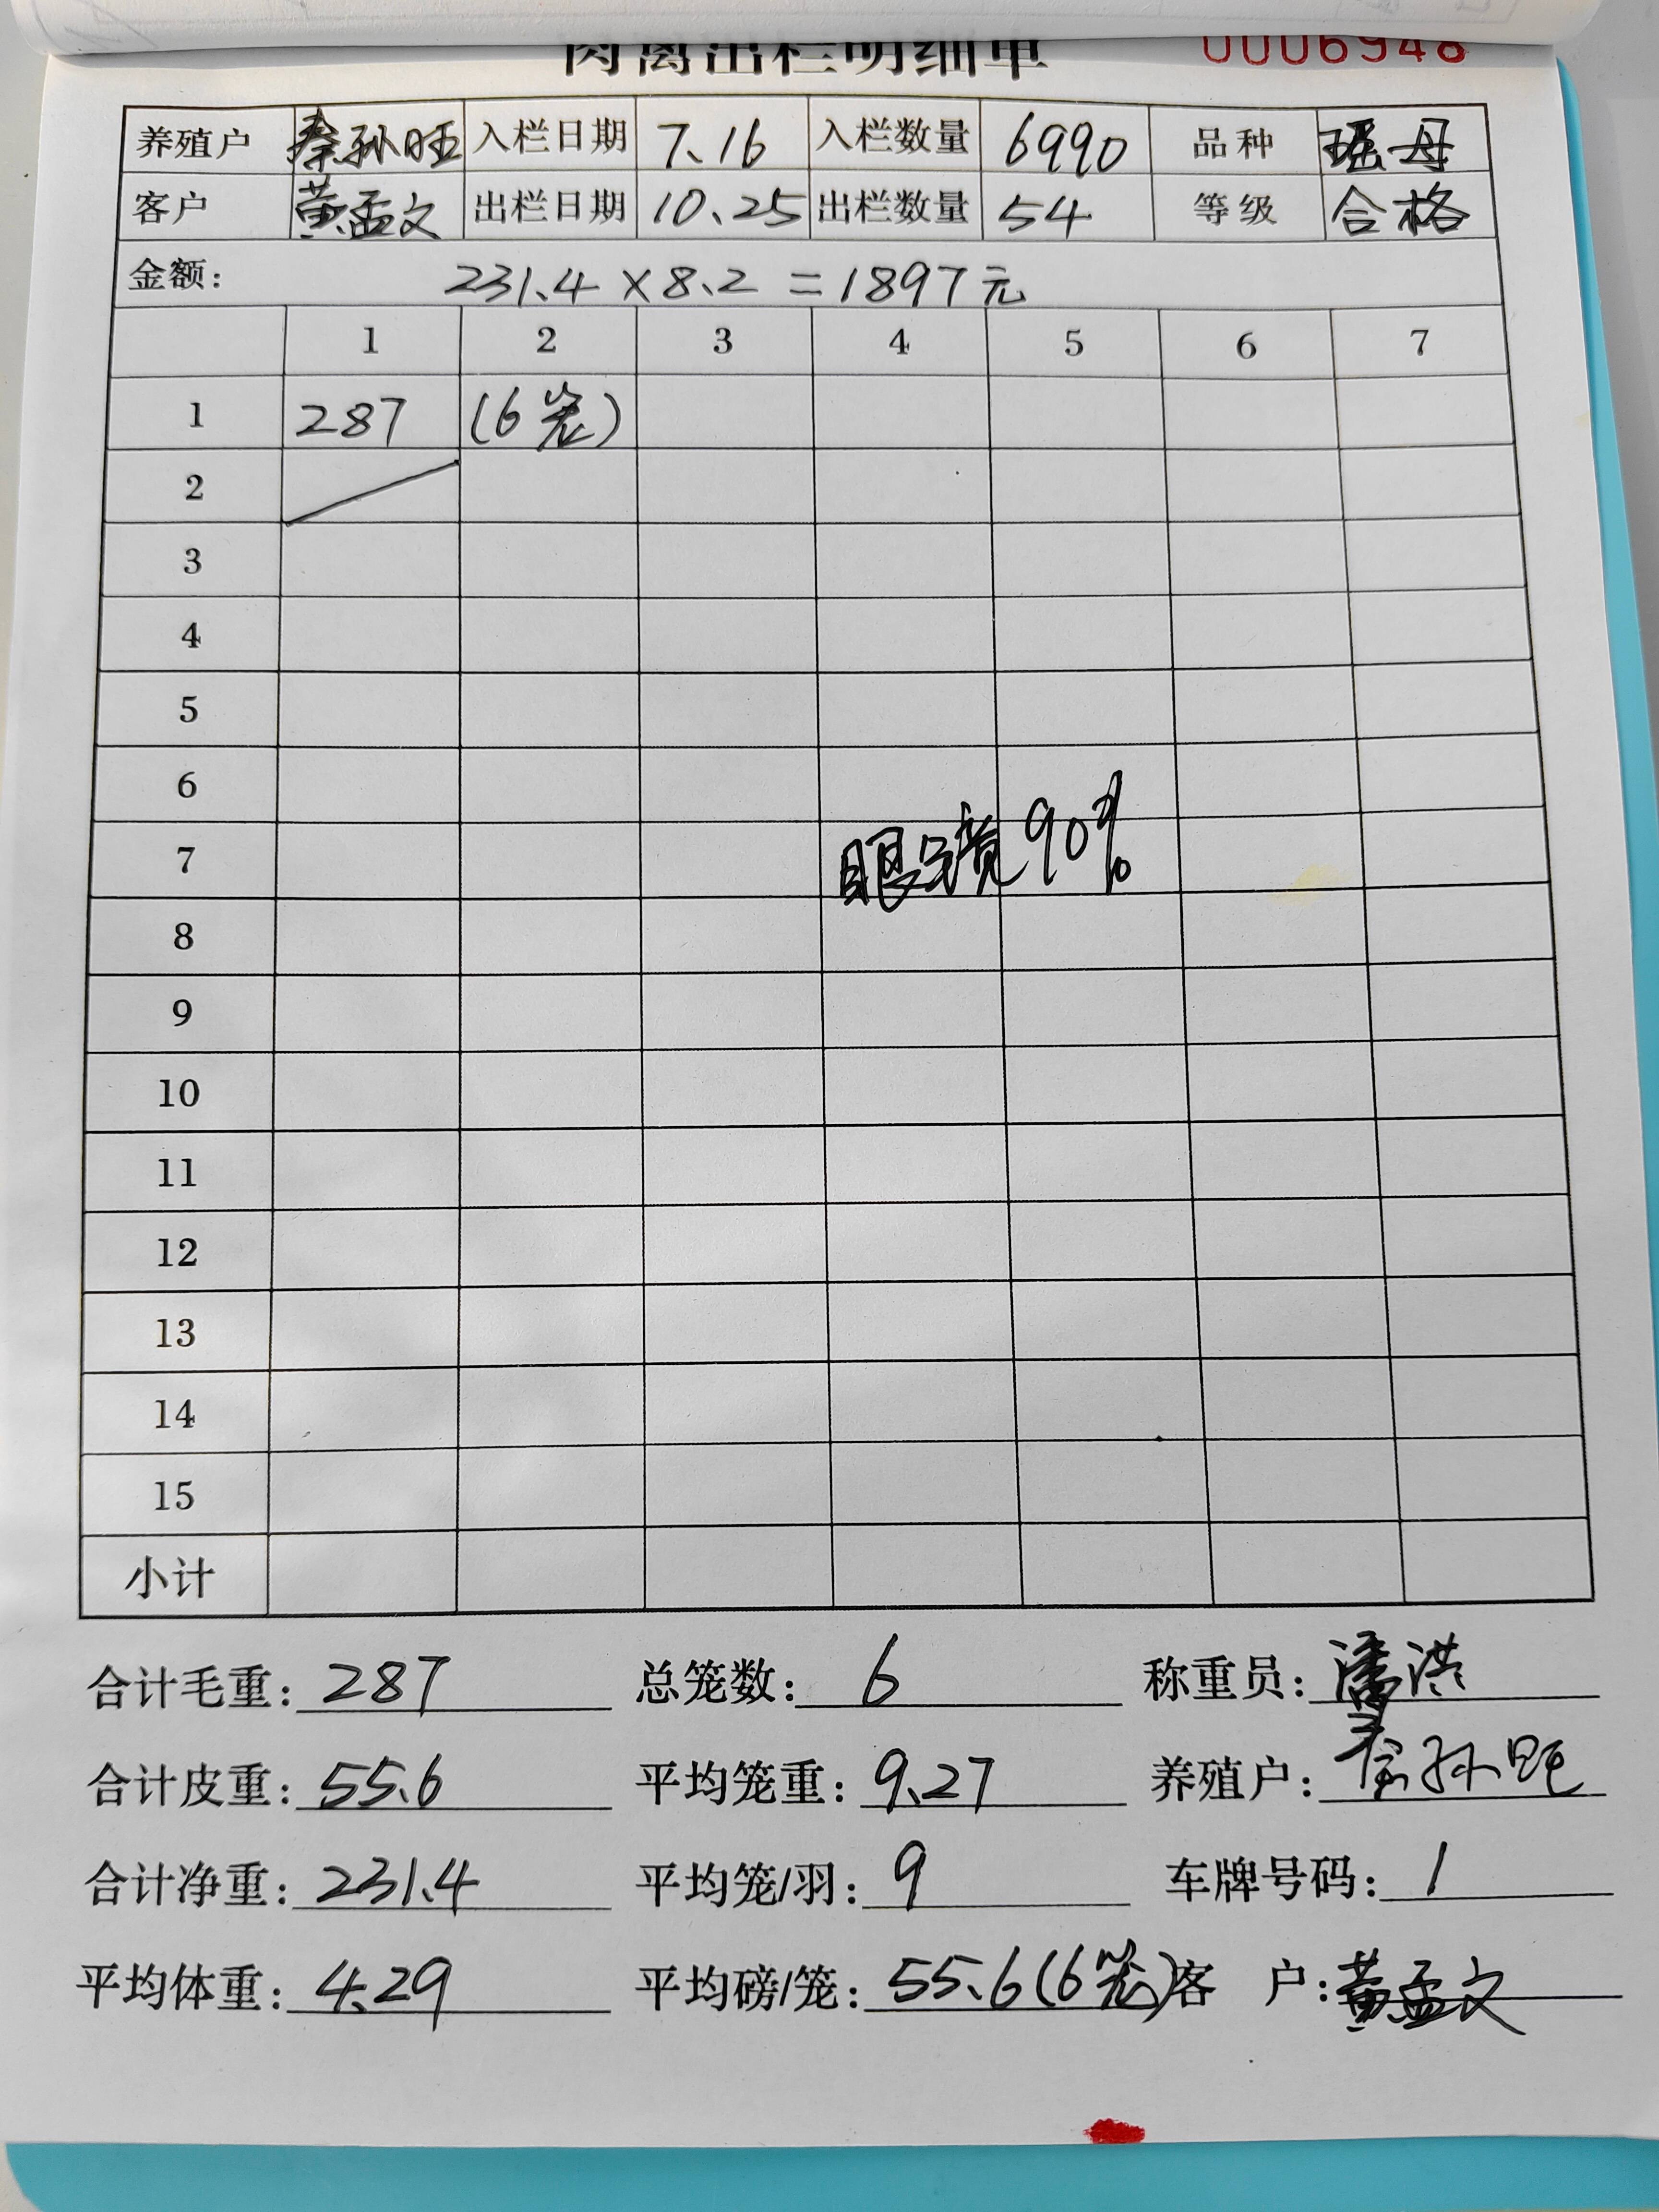 肉禽出栏明细单 0006948
养殖户 秦孙旺 入栏日期 7.16 入栏数量 6990 品种 瑶母
客户 黄孟文 出栏日期 10.25 出栏数量 54 等级 合格
金额: 231.4×8.2=1897元
1 2 3 4 5 6 7
1 287 (6笼)
2
3
4
5
6
7 眼镜90%
8
9
10
11
12
13
14
15
小计
合计毛重: 287 总笼数: 6 称重员: 潘洪
合计皮重: 55.6 平均笼重: 9.27 养殖户: 秦孙旺
合计净重: 231.4 平均笼/羽: 9 车牌号码: 1
平均体重: 4.29 平均磅/笼: 55.6(6笼) 客 户: 黄孟文